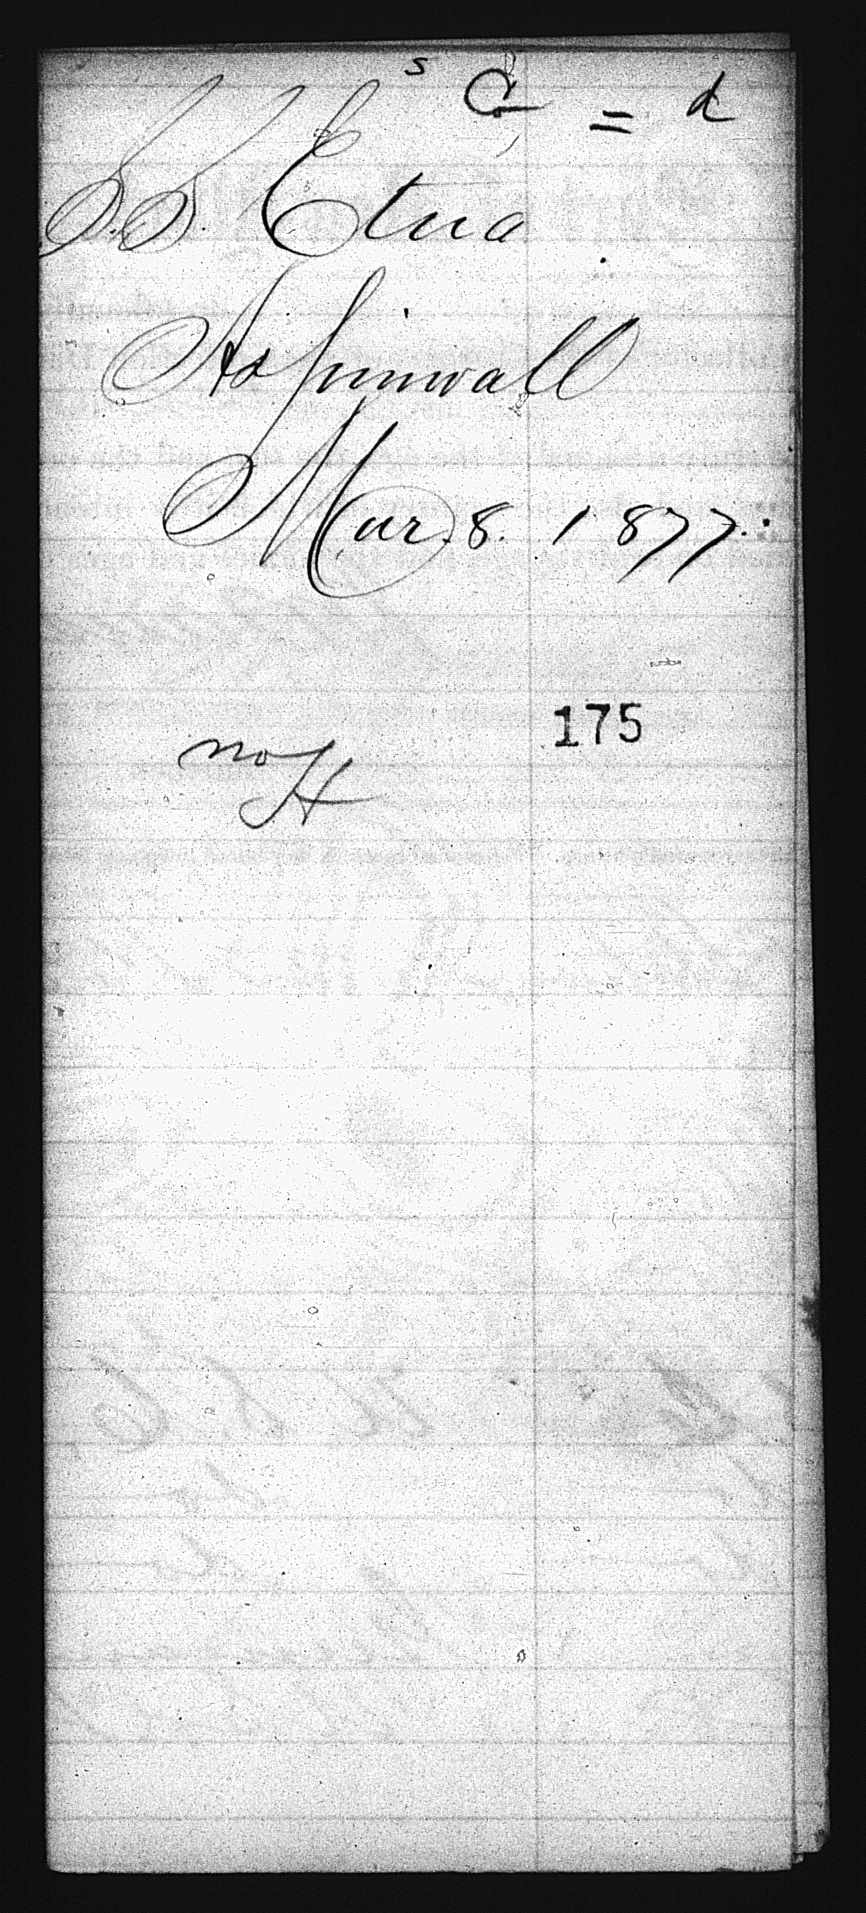 S.S. Etna
Aspinwall
Mar. 8. 1877.
175
no H